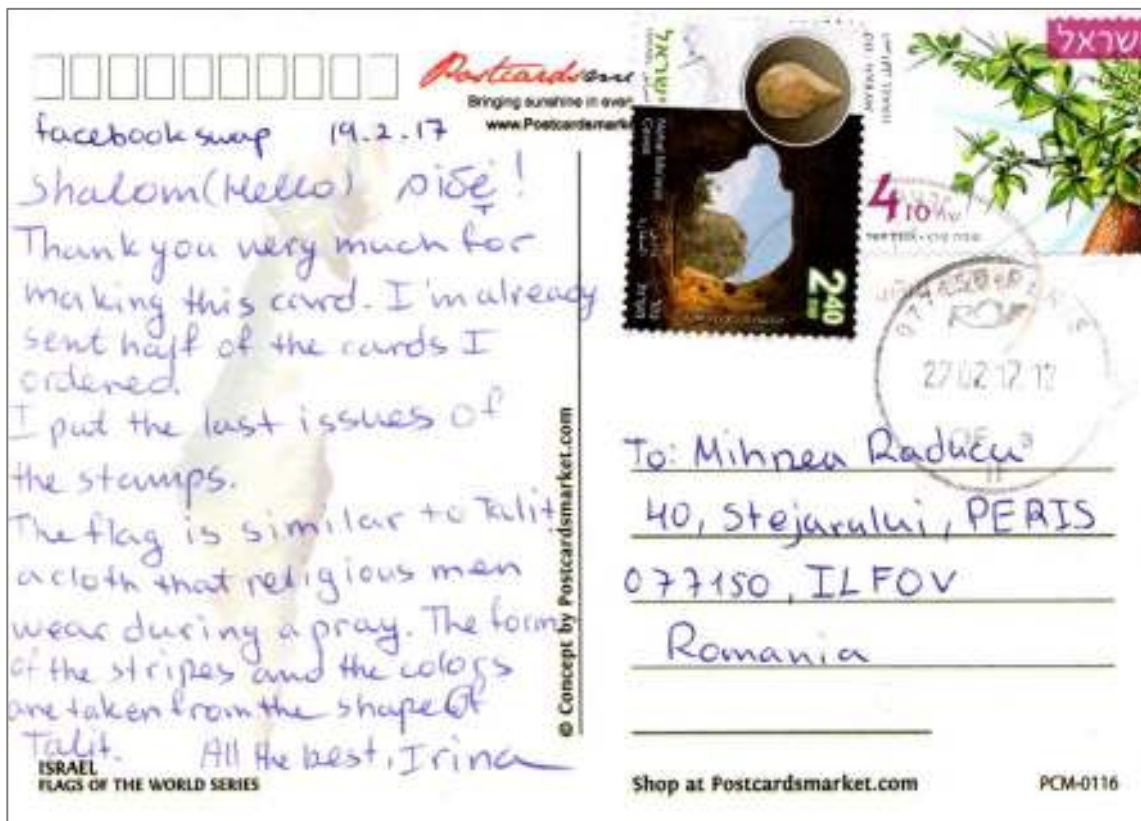 Postcards
Bringing sunshine in
www.Postcardsmark
facebook swap 19.2.17
Shalom (Hello) !
Thank you very much for
making this card. I'm already
sent half of the cards I
ordered.
I put the last issues of
the stamps.
The flag is similar to Talit
a cloth that religious men
wear during a pray. The form
of the stripes and the colors
are taken from the shape of
Talit. All the best, Irina
ISRAEL
FLAGS OF THE WORLD SERIES
© Concept by Postcardsmarket.com
ישראל
ISRAEL
2.40
ישראל
ISRAEL
4.10
27.02.17.12
To: Mihnea Raducu
40, Stejarului, PERIS
077150, ILFOV
Romania
Shop at Postcardsmarket.com
PCM-0116